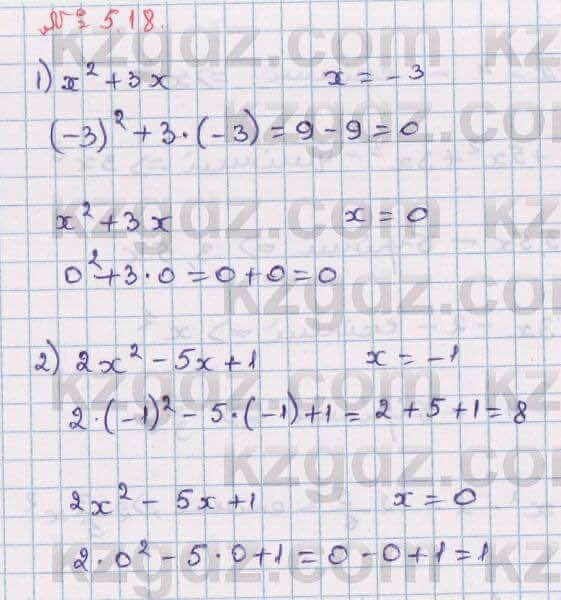 № 5.18.
1) x² + 3x x = -3
(-3)² + 3·(-3) = 9 - 9 = 0
x² + 3x x = 0
0² + 3·0 = 0 + 0 = 0
2) 2x² - 5x + 1 x = -1
2·(-1)² - 5·(-1) + 1 = 2 + 5 + 1 = 8
2x² - 5x + 1 x = 0
2·0² - 5·0 + 1 = 0 - 0 + 1 = 1
kzgdz.com
kzgdz.com
kzgdz.com
kzgdz.com
kzgdz.com
kzgdz.com
kzgdz.com